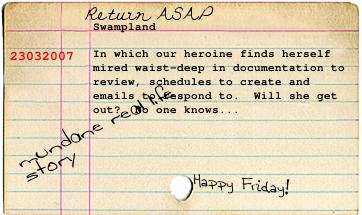 Return ASAP
Swampland
23032007 In which our heroine finds herself
mired waist-deep in documentation to
review, schedules to create and
emails to respond to. Will she get
out? No one knows...
mundane real life
story
Happy Friday!